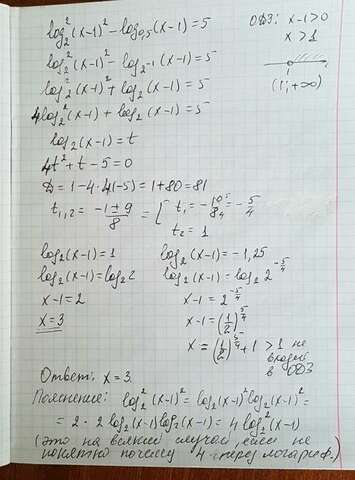 log₂²(x-1)² - log₀,₅(x-1) = 5
ОДЗ: x-1>0
x > 1
log₂²(x-1)² - log₂-₁(x-1) = 5
log₂²(x-1)² + log₂(x-1) = 5
(1; +∞)
4log₂²(x-1) + log₂(x-1) = 5
log₂(x-1) = t
4t² + t - 5 = 0
D = 1 - 4·4(-5) = 1 + 80 = 81
t₁,₂ = (-1 ± 9)/8 = [ t₁ = -10⁵/8₄ = -5/4
t₂ = 1
log₂(x-1) = 1
log₂(x-1) = log₂2
x-1 = 2
x = 3
log₂(x-1) = -1,25
log₂(x-1) = log₂2^(-5/4)
x-1 = 2^(-5/4)
x-1 = (1/2)^(5/4)
x = (1/2)^(5/4) + 1 > 1 не
входит
в ОДЗ
Ответ: x = 3.
Пояснение: log₂²(x-1)² = log₂(x-1)² log₂(x-1)² =
= 2 · 2 log₂(x-1) log₂(x-1) = 4 log₂²(x-1)
(это на всякий случай, если не
понятно почему 4 перед логариф.)